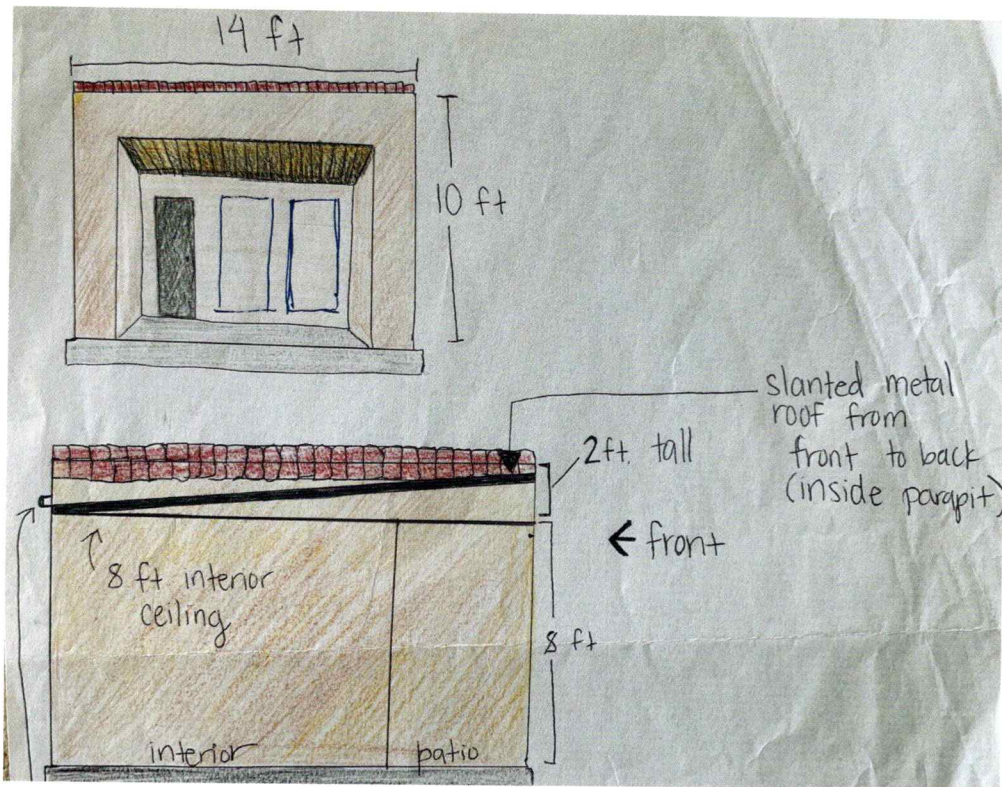 14 ft
10 ft
slanted metal
roof from
front to back
(inside parapit)
2ft. tall
← front
8 ft interior
ceiling
8 ft
interior
patio